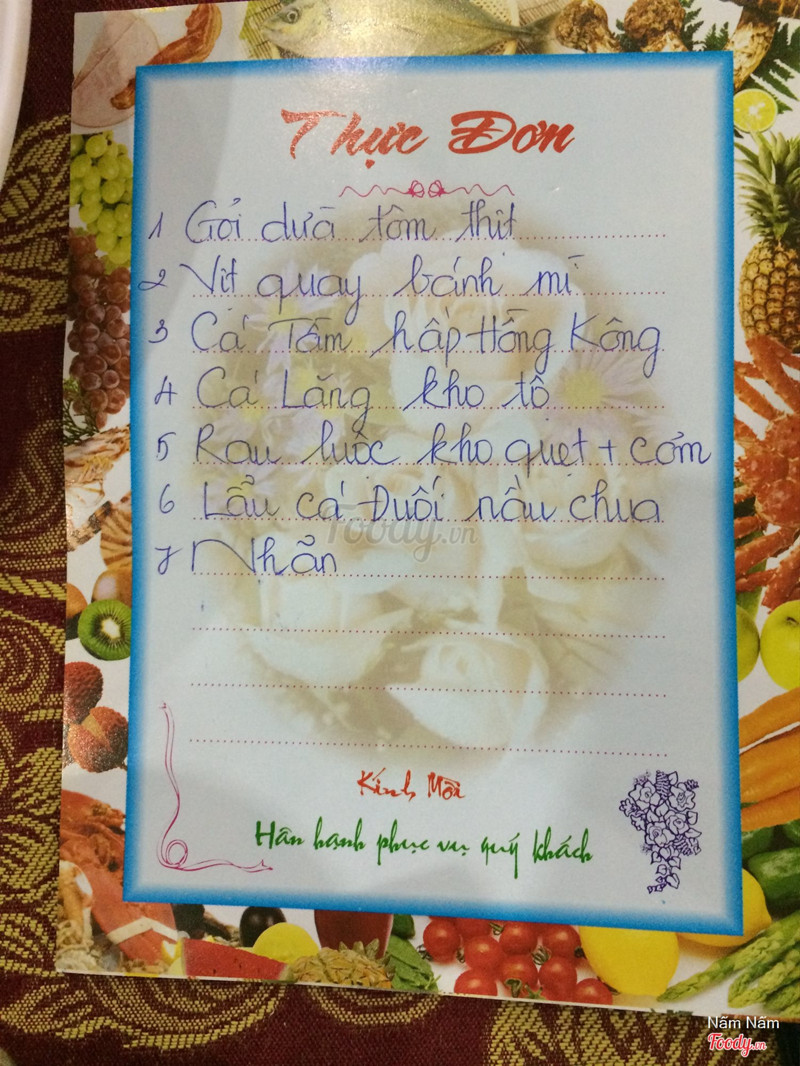 Thực Đơn
1 Gỏi dừa tôm thịt
2 Vịt quay bánh mì
3 Cá Tầm hấp Hồng Kông
4 Cá Lăng kho tộ
5 Rau luộc kho quẹt + cơm
6 Lẩu cá Đuối nấu chua
7 Nhãn
Foody.vn
Kính Mời
Hân hạnh phục vụ quý khách
Nấm Nấm
Foody.vn